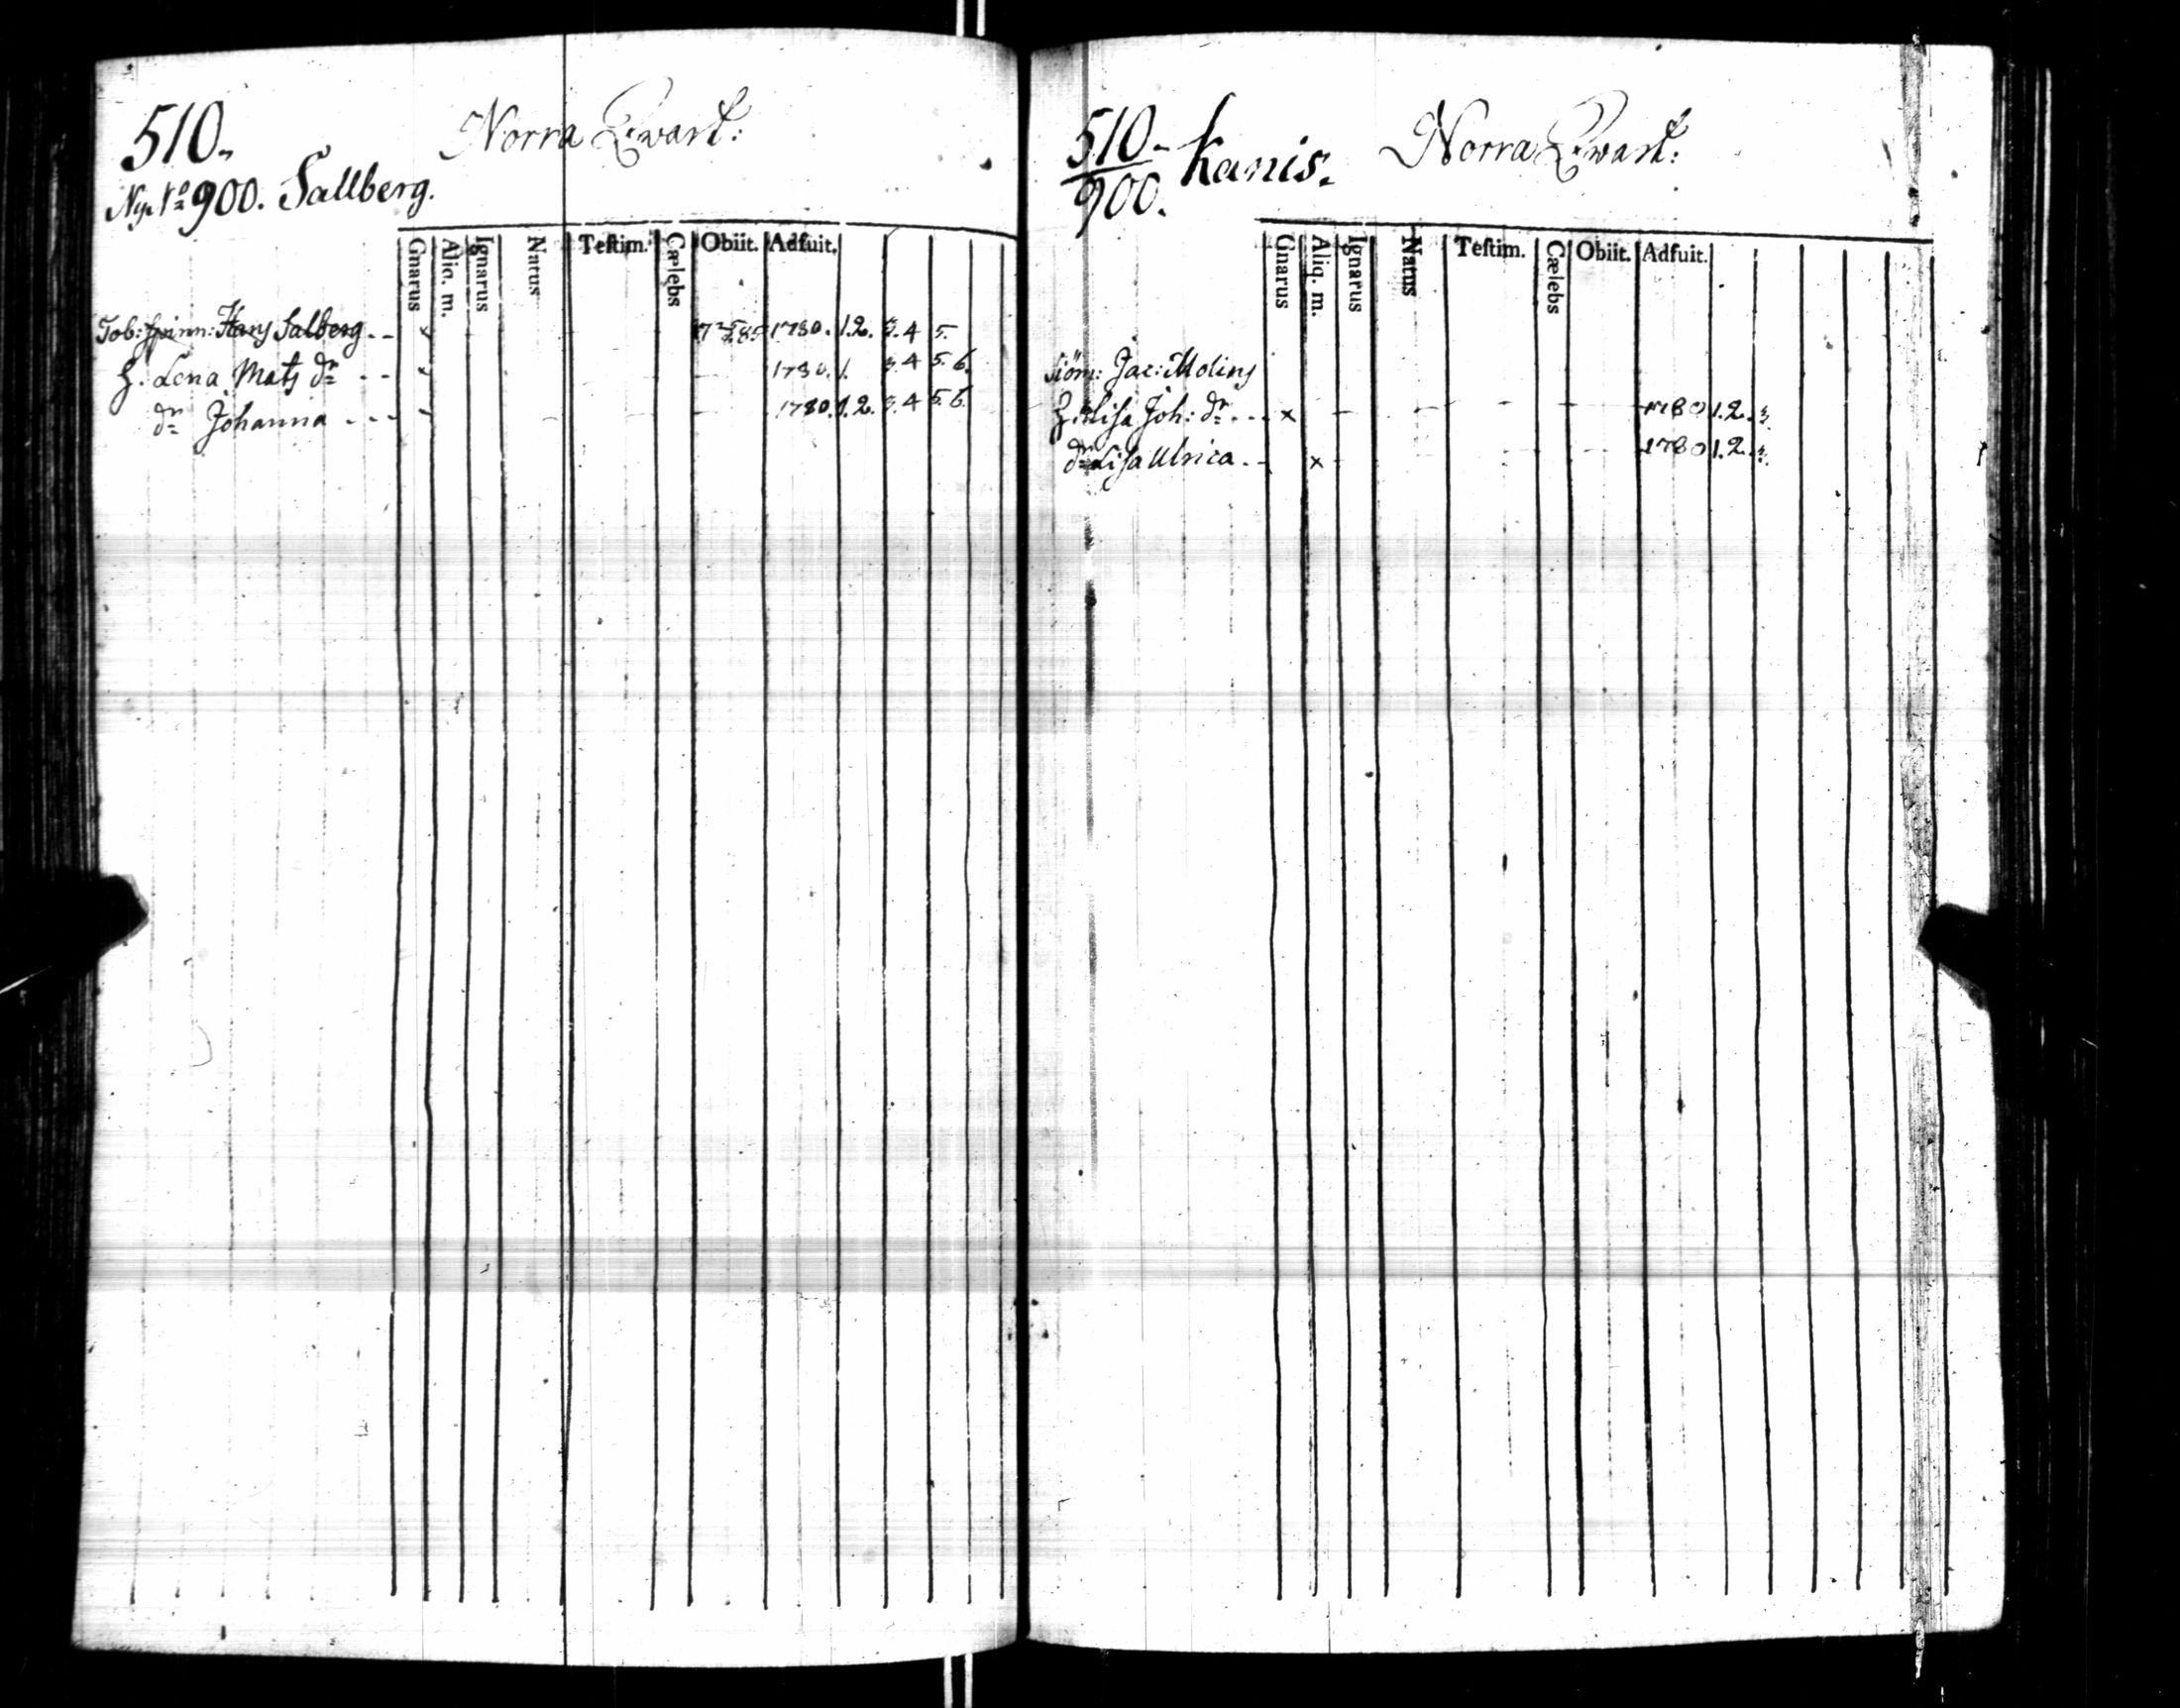 510.
Norra Qwart:
Ny. No 900. Sallberg.
Gnarus Aliq. m. Ignarus Natus Teſtim. Cælebs Obiit. Adfuit.
Tob: ſpinn: Hans Salberg . . 1780. 1.2. 3.4 5.
H. Lena Mats dr . . 1780. 1. 3.4 5. 6.
dr Johanna . . . 1780. 1.2. 3.4 5. 6.
510.
900. Kanis. Norra Qwart:
Gnarus Aliq. m. Ignarus Natus Teſtim. Cælebs Obiit. Adfuit.
Siöm: Jac: Molins
H. Lisa Joh: dr . . . x 1780 1. 2.
dr Lisa Ulrica . . x 1780 1. 2.